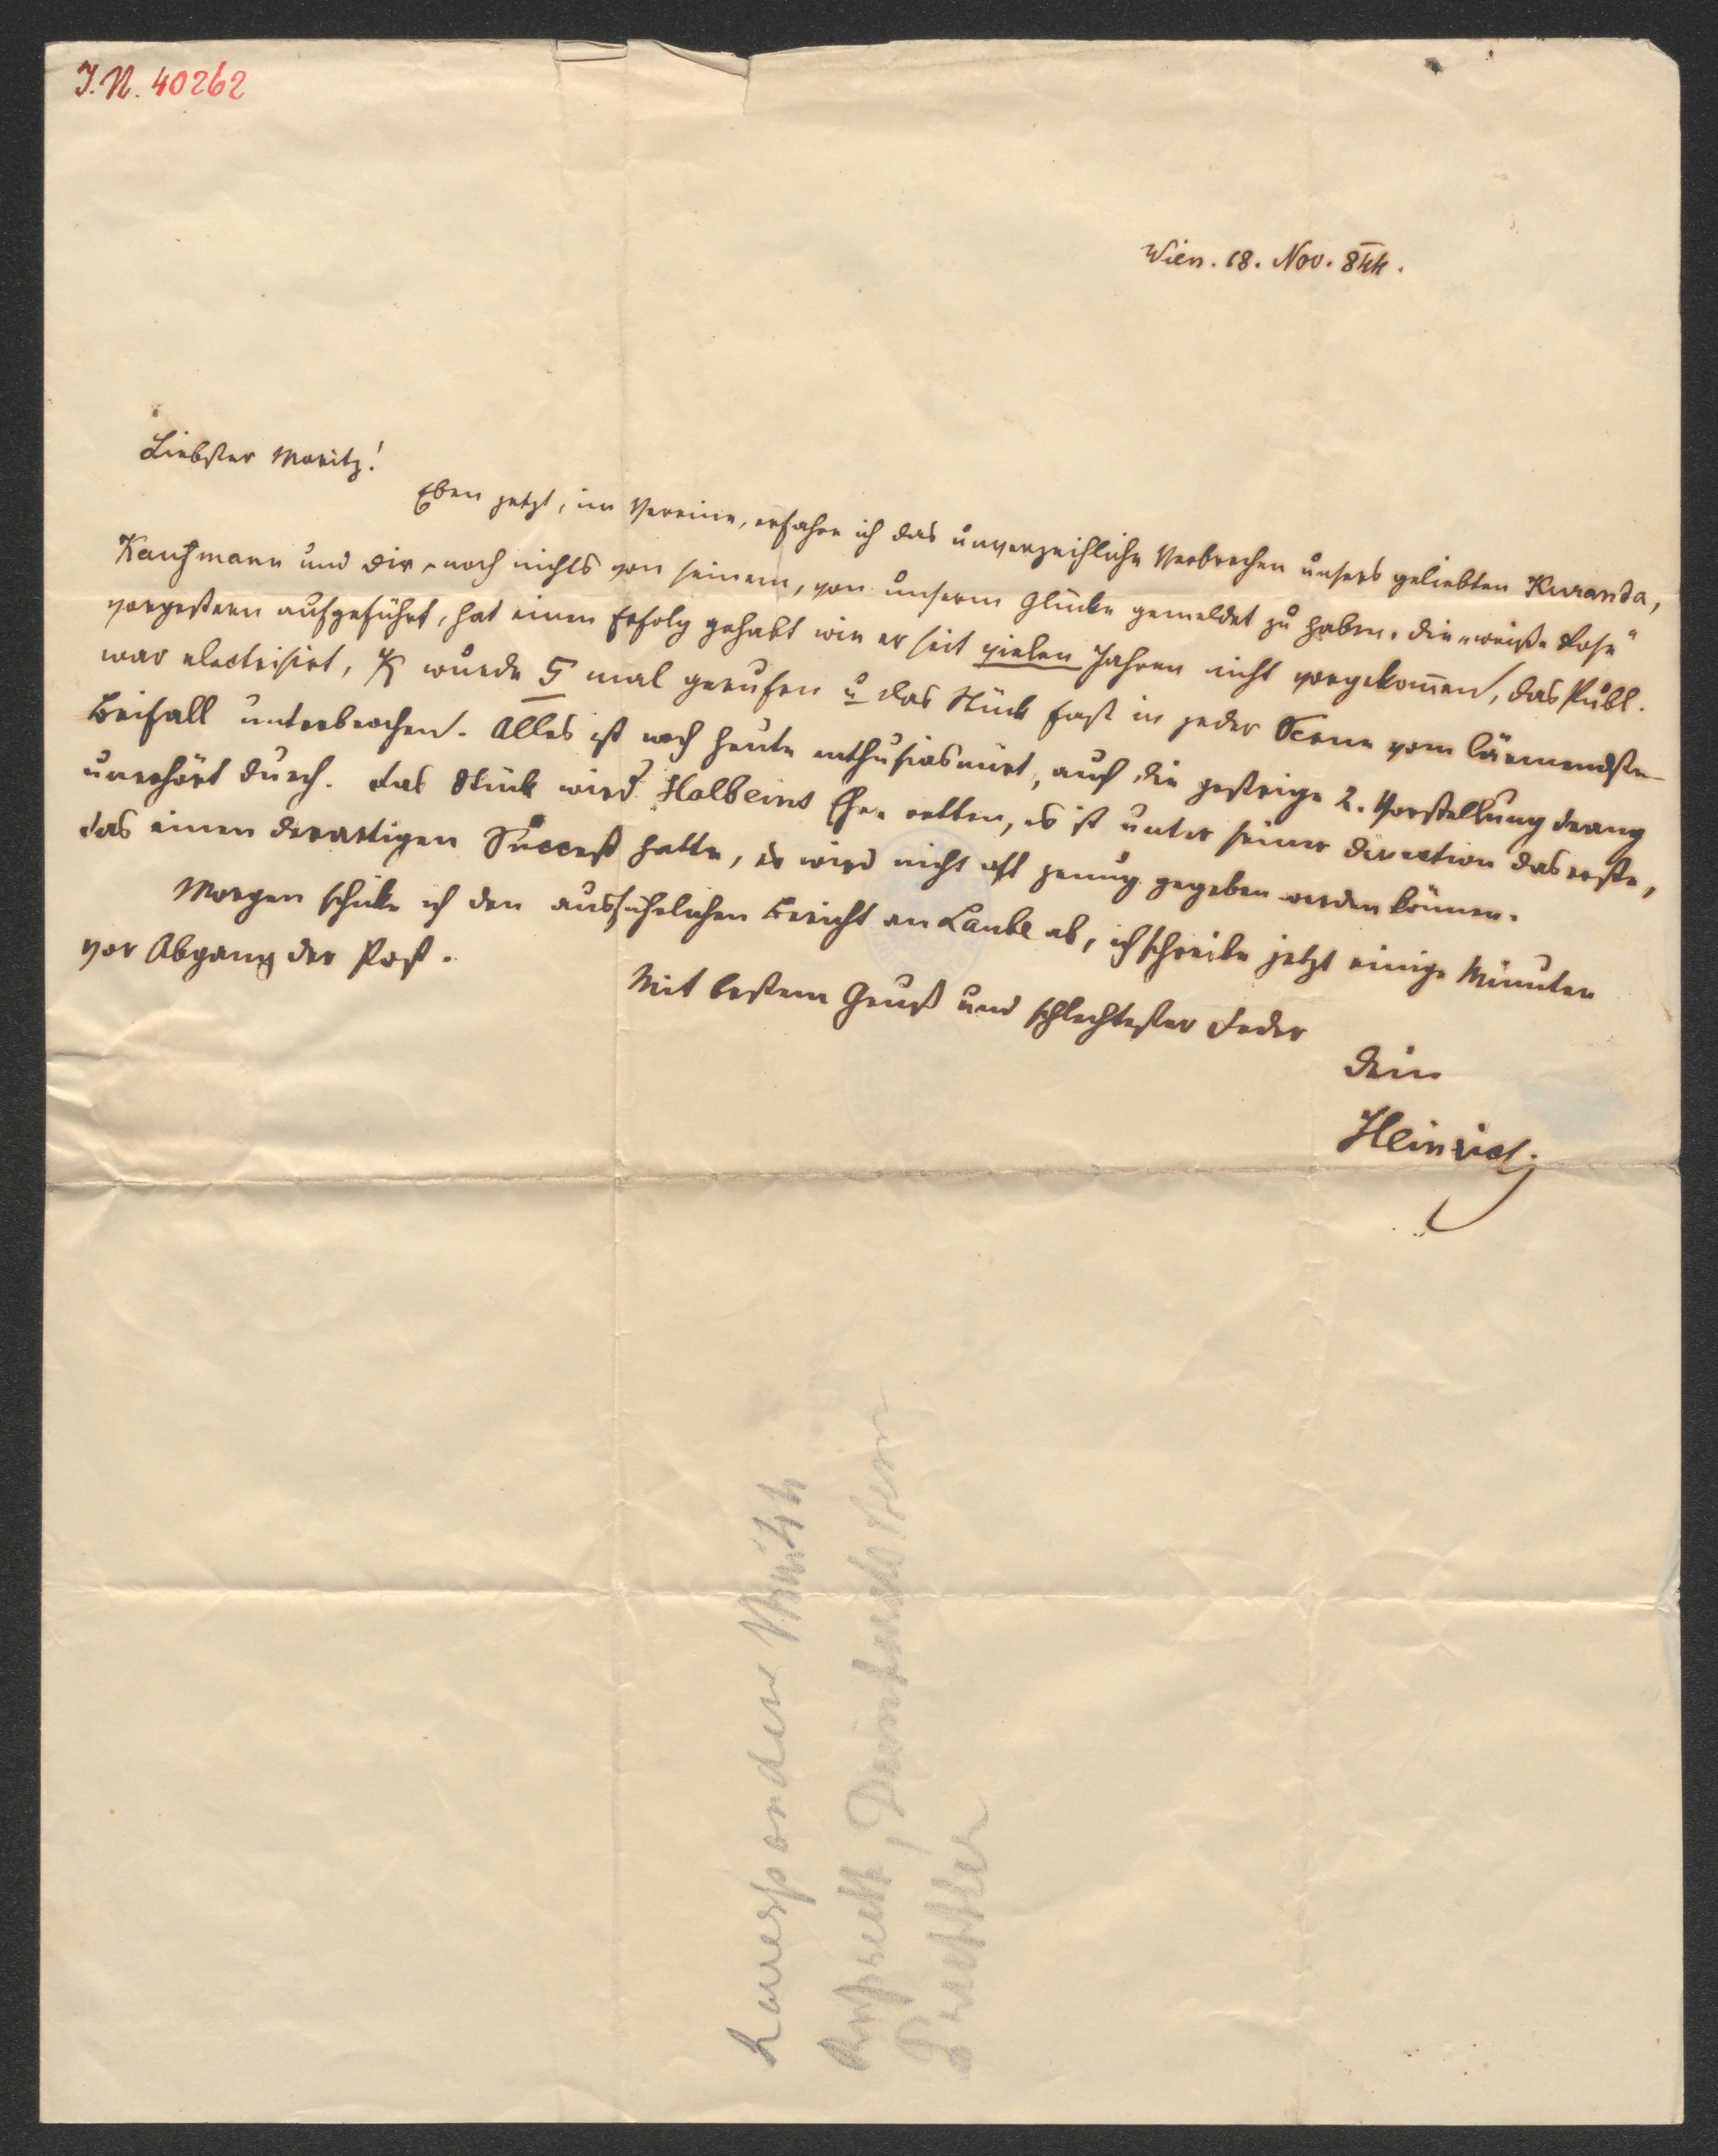 I.N. 40262
Wien. 18. Nov. 844.
Liebster Moritz!
Eben jetzt, im Vereine, erfahre ich das unverzeihliche Verbrechen unsers geliebten Kuranda,
Kaufmann und dir noch nichts von seinem, von unserm Glücke gemeldet zu haben. Die „weiße Rose“
vorgestern aufgeführt, hat einen Erfolg gehabt wie er seit vielen Jahren nicht vorgekom̄en, das Publ.
war electrisirt, K wurde 5 mal gerufen u das Stück fast in jeder Scene vom lärmendsten
Beifall unterbrochen. Alles ist noch heute enthusiasmirt, auch die gestrige 2. Vorstellung drang
unerhört durch. Das Stück wird Holbeins Ehre retten, es ist unter seiner Direction das erste,
das einen derartigen Success hatte, es wird nicht oft genug gegeben werden können.
Morgen schicke ich den ausführlichen Bericht an Laube ab, ich schreibe jetzt einige Minuten
vor Abgang der Post.
Mit bestem Gruß und schlechtester Feder
Dein
Heinrich
Prechtler